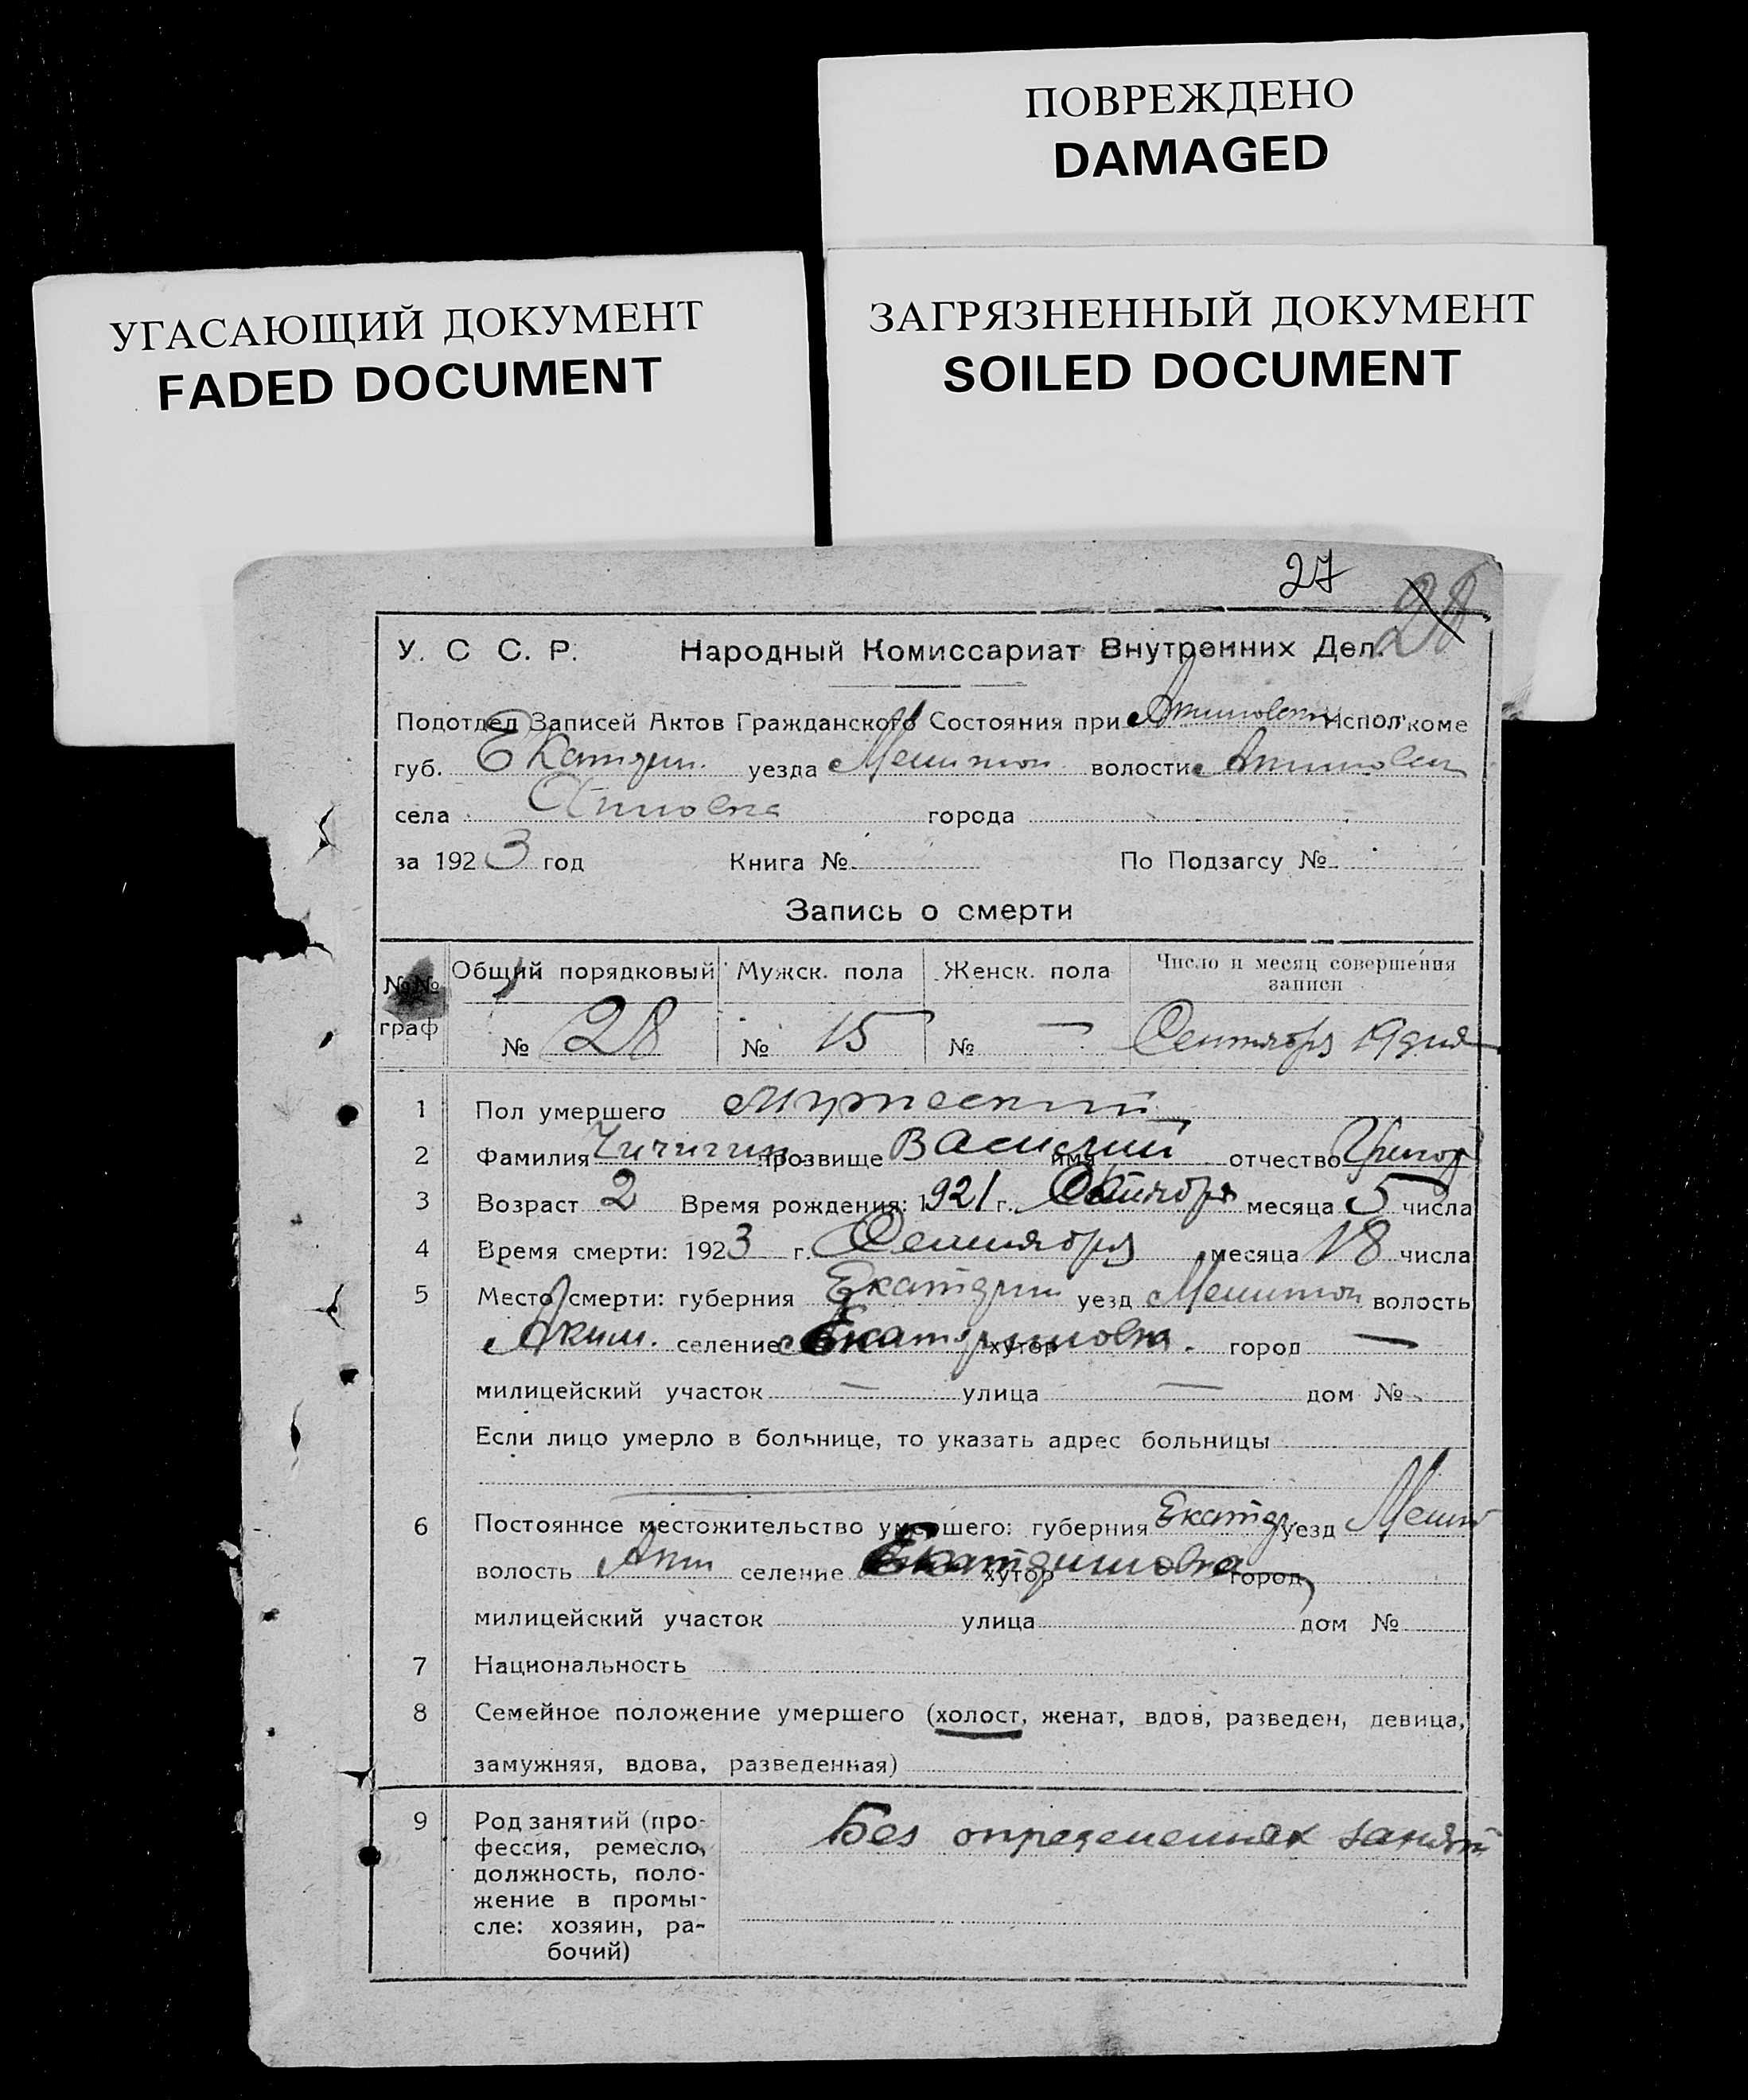 ПОВРЕЖДЕНО
DAMAGED
УГАСАЮЩИЙ ДОКУМЕНТ
FADED DOCUMENT
ЗАГРЯЗНЕННЫЙ ДОКУМЕНТ
SOILED DOCUMENT
27
28
У. С С. Р. Народный Комиссариат Внутренних Дел.
Подотдел Записей Актов Гражданского Состояния при Исполкоме
губ. Екатерин. уезда Мелитоп волости
села города
за 1923 год Книга № По Подзагсу №
Запись о смерти
№№ граф Общий порядковый Мужск. пола Женск. пола Число и месяц совершения записи
№ 28 № 15 № — Сентября 19 дня
1 Пол умершего Мужеский
2 Фамилия Чичигин прозвище Василий имя отчество Григор
3 Возраст 2 Время рождения: 1921 г. месяца 5 числа
4 Время смерти: 1923 г. Сентября месяца 18 числа
5 Место смерти: губерния Екатерин уезд Мелитоп волость
Аким. селение Екатериновка хутор город —
милицейский участок — улица — дом №
Если лицо умерло в больнице, то указать адрес больницы
6 Постоянное местожительство умершего: губерния Екатер уезд Мелит
волость Аким селение Екатериновка хутор город
милицейский участок улица дом №
7 Национальность
8 Семейное положение умершего (холост, женат, вдов, разведен, девица,
замужняя, вдова, разведенная)
9 Род занятий (про- Без определенных занятий
фессия, ремесло,
должность, поло-
жение в промы-
сле: хозяин, ра-
бочий)